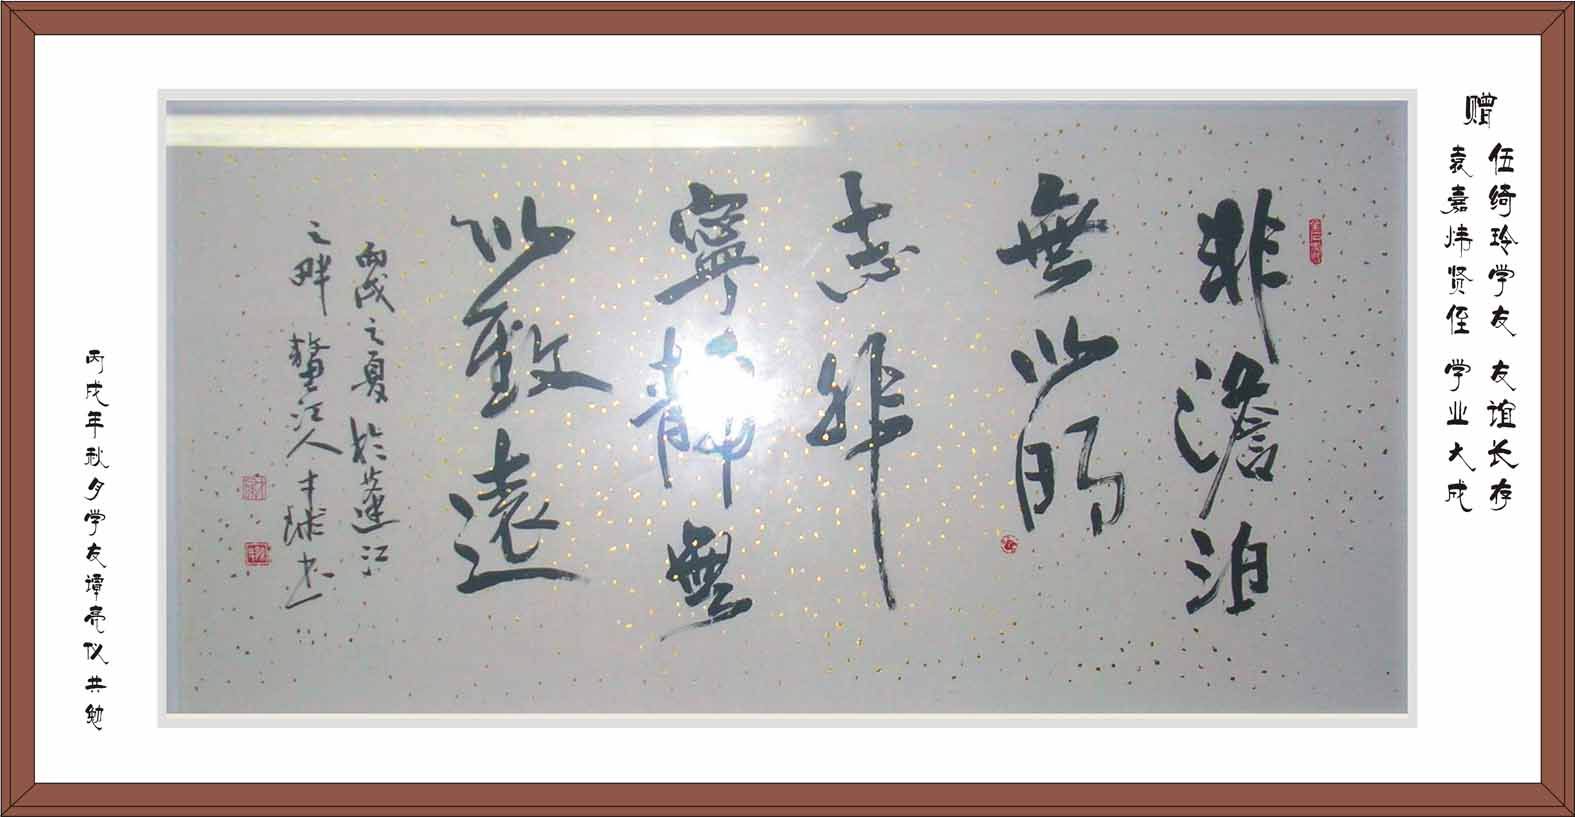 赠
伍绮玲学友 友谊长存
袁嘉炜贤侄 学业大成
非澹泊
無以明
志非
寧靜無
以致遠
丙戌之夏於蓬江
之畔 鼇江人
丙戌年秋夕学友谭亮仪共勉